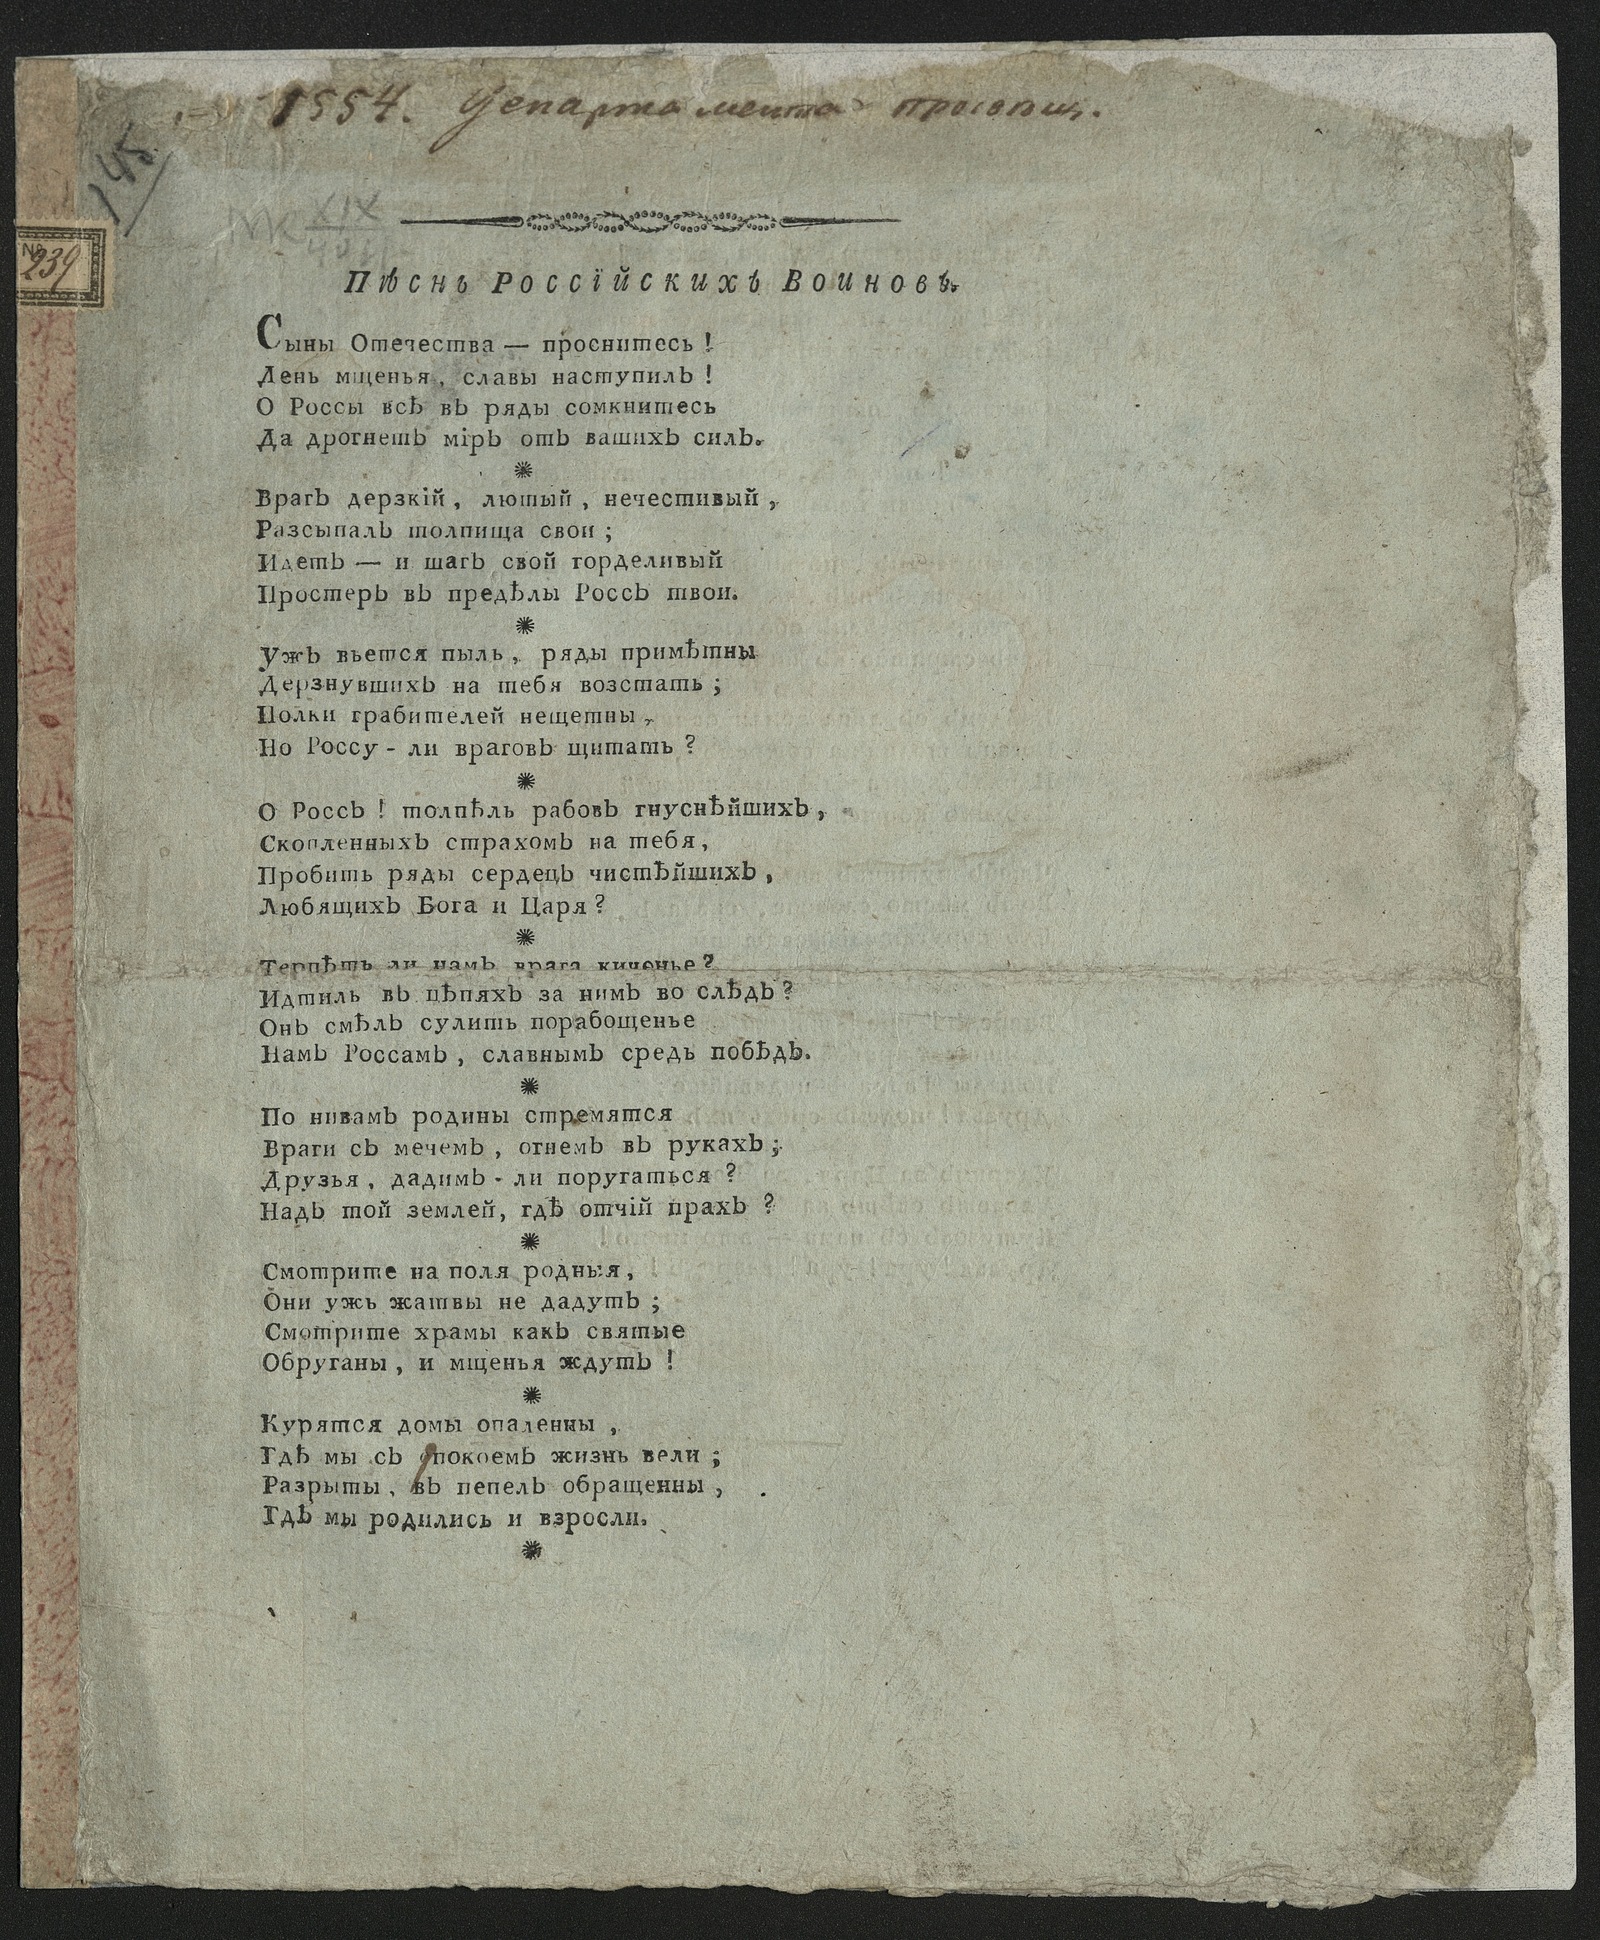 1554. Департамента просвѣщ.
145
№ 239
NK XIX
Пѣснь Россїйскихъ Воиновъ.
Сыны Отечества — проснитесь !
День мщенья, славы наступилъ !
О Россы всѣ въ ряды сомкнитесь
Да дрогнетъ мїръ отъ вашихъ силъ.
Врагъ дерзкїй, лютый, нечестивый,
Разсыпалъ толпища свои ;
Идетъ — и шагъ свой горделивый
Простеръ въ предѣлы Россъ твои.
Ужъ вьется пыль, ряды примѣтны
Дерзнувшихъ на тебя возстать ;
Полки грабителей нещетны,
Но Россу - ли враговъ щитать ?
О Россъ ! толпѣль рабовъ гнуснѣйшихъ,
Скопленныхъ страхомъ на тебя,
Пробить ряды сердецъ чистѣйшихъ,
Любящихъ Бога и Царя ?
Терпѣть ли намъ врага киченье ?
Идтиль въ цѣпяхъ за нимъ во слѣдъ ?
Онъ смѣлъ сулить порабощенье
Намъ Россамъ, славнымъ средь побѣдъ.
По нивамъ родины стремятся
Враги съ мечемъ, огнемъ въ рукахъ ;
Друзья, дадимъ - ли поругаться ?
Надъ той землей, гдѣ отчїй прахъ ?
Смотрите на поля родныя,
Они ужь жатвы не дадутъ ;
Смотрите храмы какъ святые
Обруганы, и мщенья ждутъ !
Курятся домы опаленны,
Гдѣ мы съ спокоемъ жизнь вели ;
Разрыты, въ пепелъ обращенны,
Гдѣ мы родились и взросли.